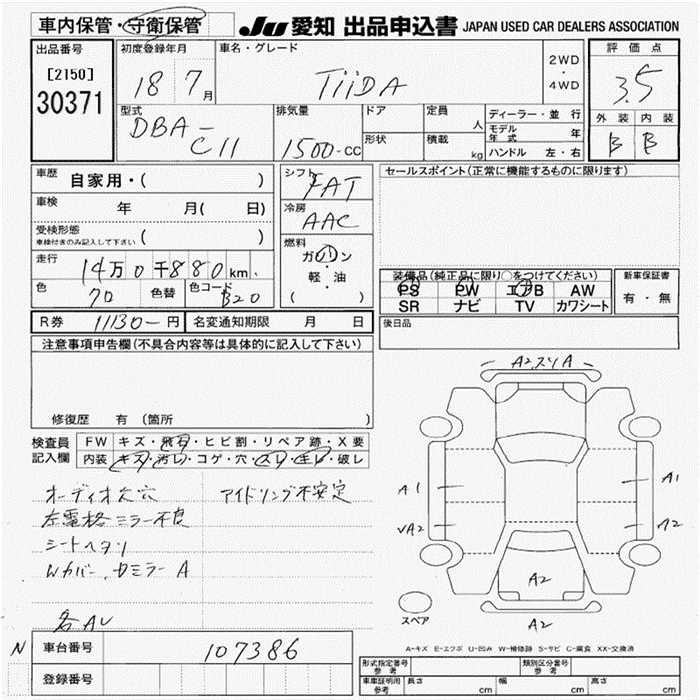 車内保管・守衛保管
JU 愛知 出品申込書 JAPAN USED CAR DEALERS ASSOCIATION
出品番号
[2150]
30371
初度登録年月
18 7月
車名・グレード
TiiDA
2WD
・
4WD
評価点
3.5
外装 内装
B B
型式
DBA-
C11
排気量
1500-CC
ドア
形状
定員 人
積載 kg
ディーラー・並行
モデル年式 年
ハンドル 左・右
車歴 自家用・( )
車検 年 月( 日)
受検形態
車検付きのみ記入して下さい ( )
走行 14万0千880km
色 70 色替 色コード B20
シフト FAT
冷房 AAC
燃料
ガソリン
・
軽・油
( )
セールスポイント(正常に機能するものに限ります)
装備品(純正品に限り○をつけてください)
PS PW エアB AW
SR ナビ TV カワシート
新車保証書
有・無
後日品
R券 11130-円 名変通知期限 月 日
注意事項申告欄(不具合内容等は具体的に記入して下さい)
修復歴 有 (箇所 )
検査員記入欄
FW キズ・飛石・ヒビ割・リペア跡・X要
内装 キズ・汚レ・コゲ・穴・スリ・主レ・破レ
オーディオ欠穴 アイドリング不安定
左電格ミラー不良
シートヘタリ
Wカバー、ドミラーA
各AU
A2スリA
A1 A1
VA2 A2
A2
スペア
A2
A-キズ E-エクボ U-凹み W-補修跡 S-サビ C-腐食 XX-交換済
N 車台番号 107386
登録番号
形式指定番号 参考 類別区分番号 参考
車庫証明用 参考 長さ cm 幅 cm 高さ cm